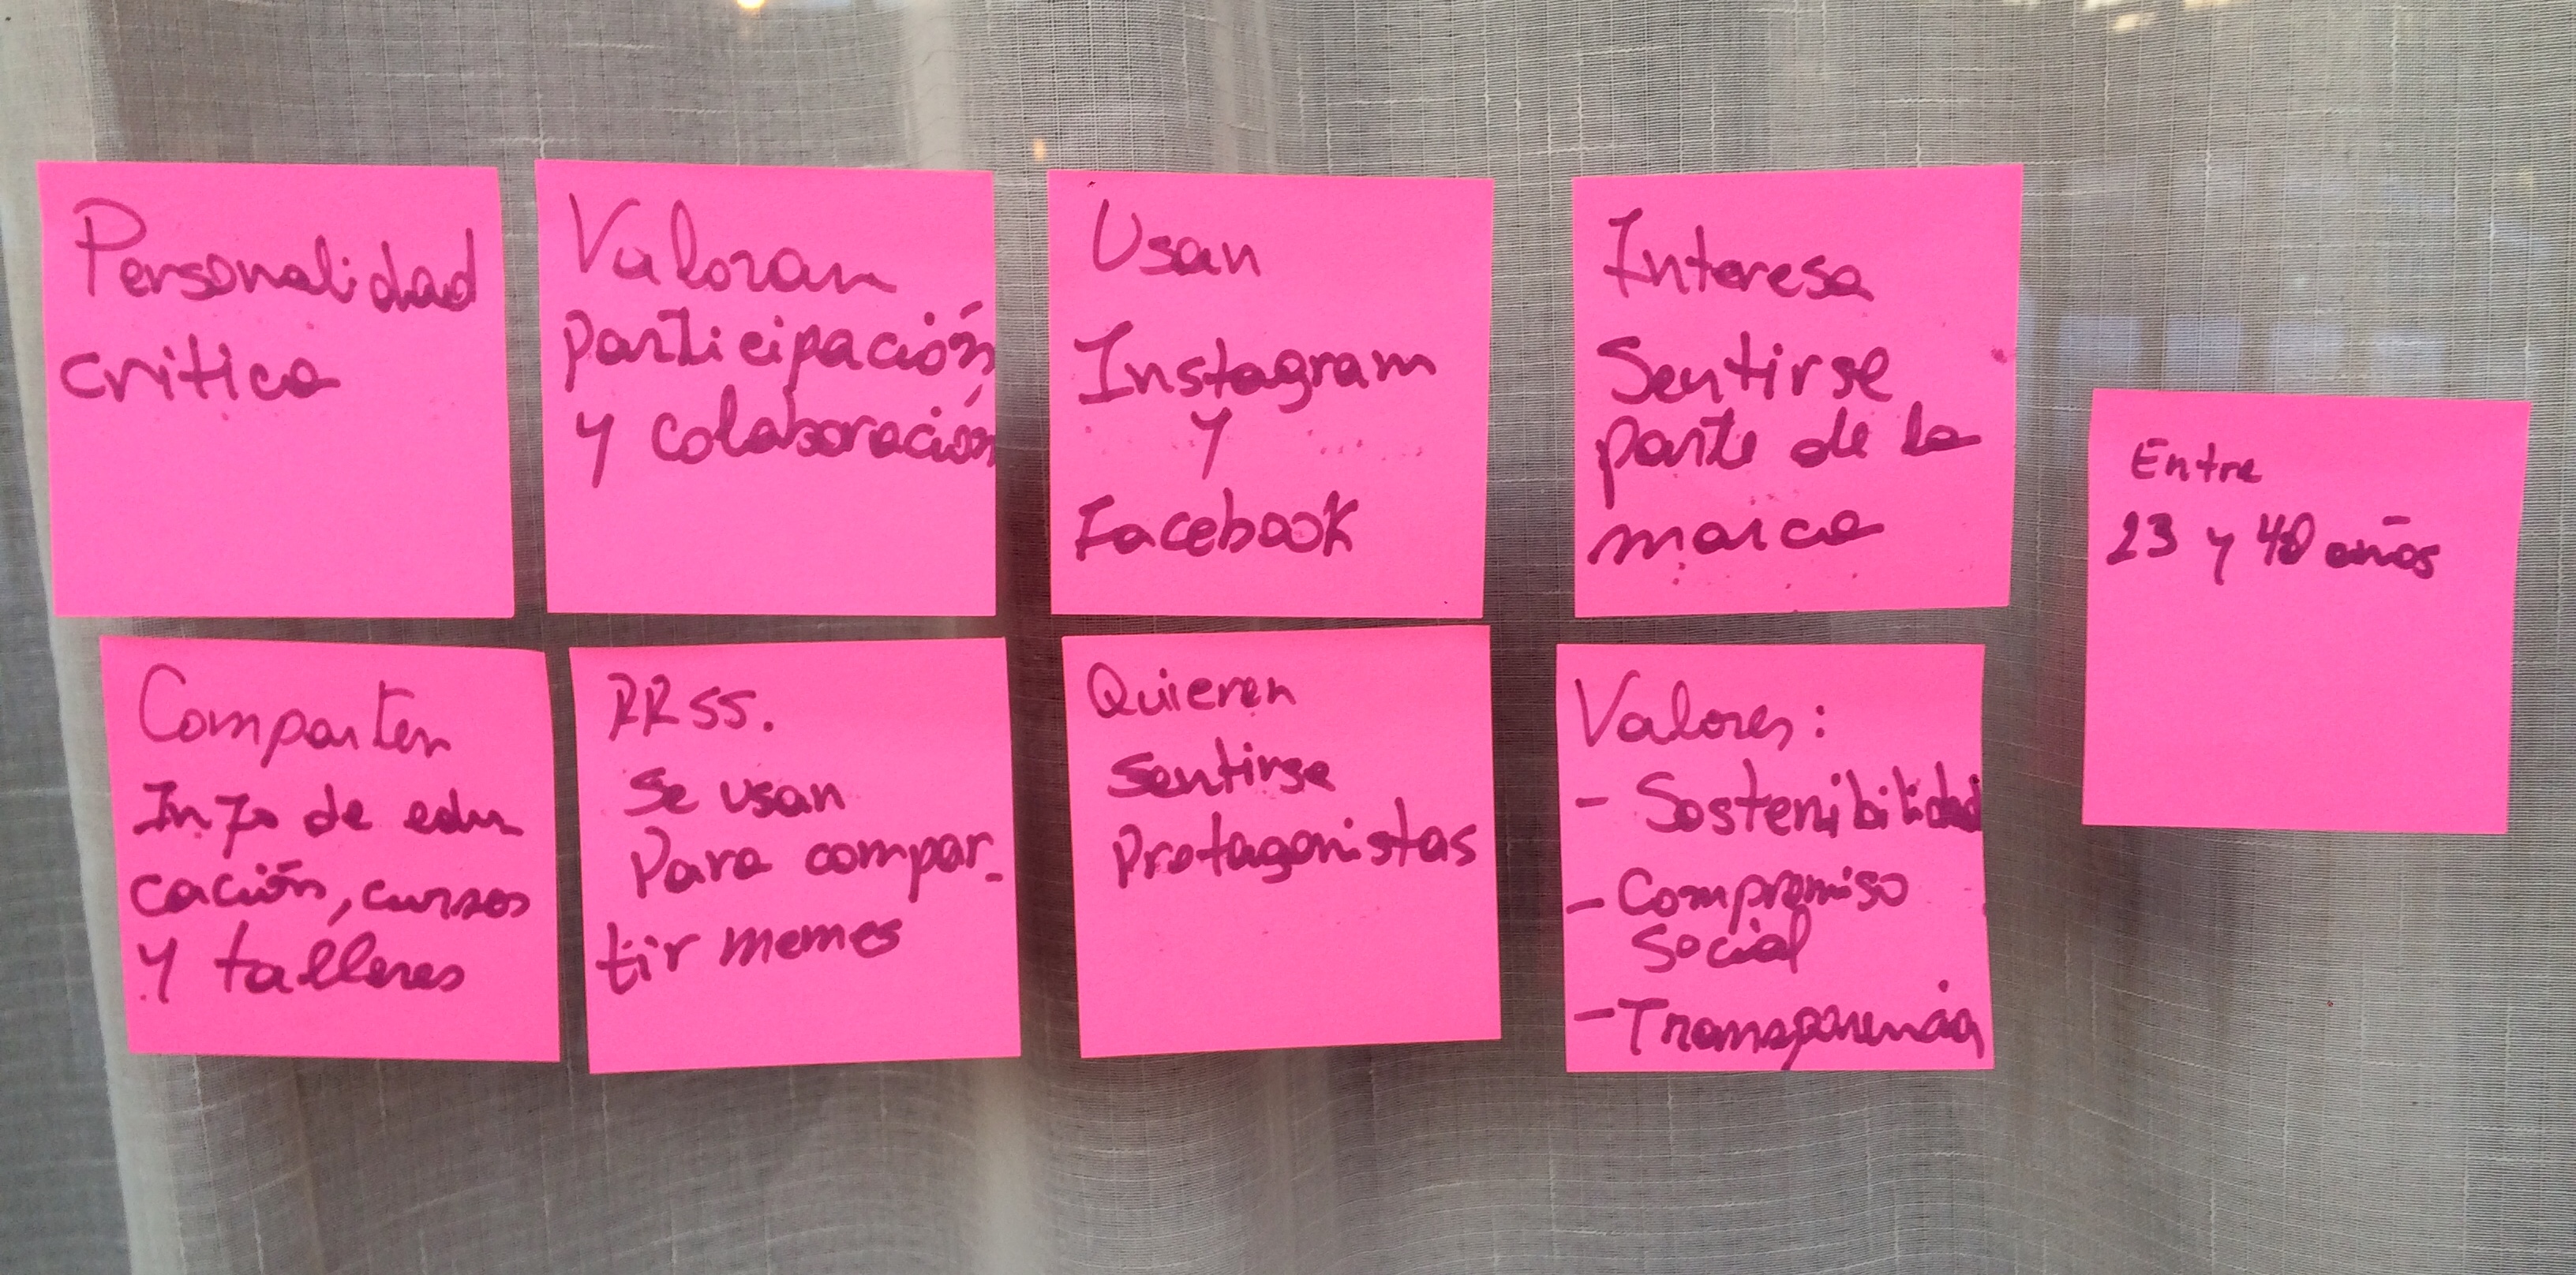 Personalidad
critica
Valoran
participación
y colaboración
Usan
Instagram
y
Facebook
Interesa
Sentirse
parte de la
marca
Entre
23 y 40 años
Comparten
Info de edu
cación, cursos
y talleres
RRSS.
Se usan
Para compar-
tir memes
Quieren
Sentirse
Protagonistas
Valores:
- Sostenibilidad
- Compromiso
Social
- Transparencia